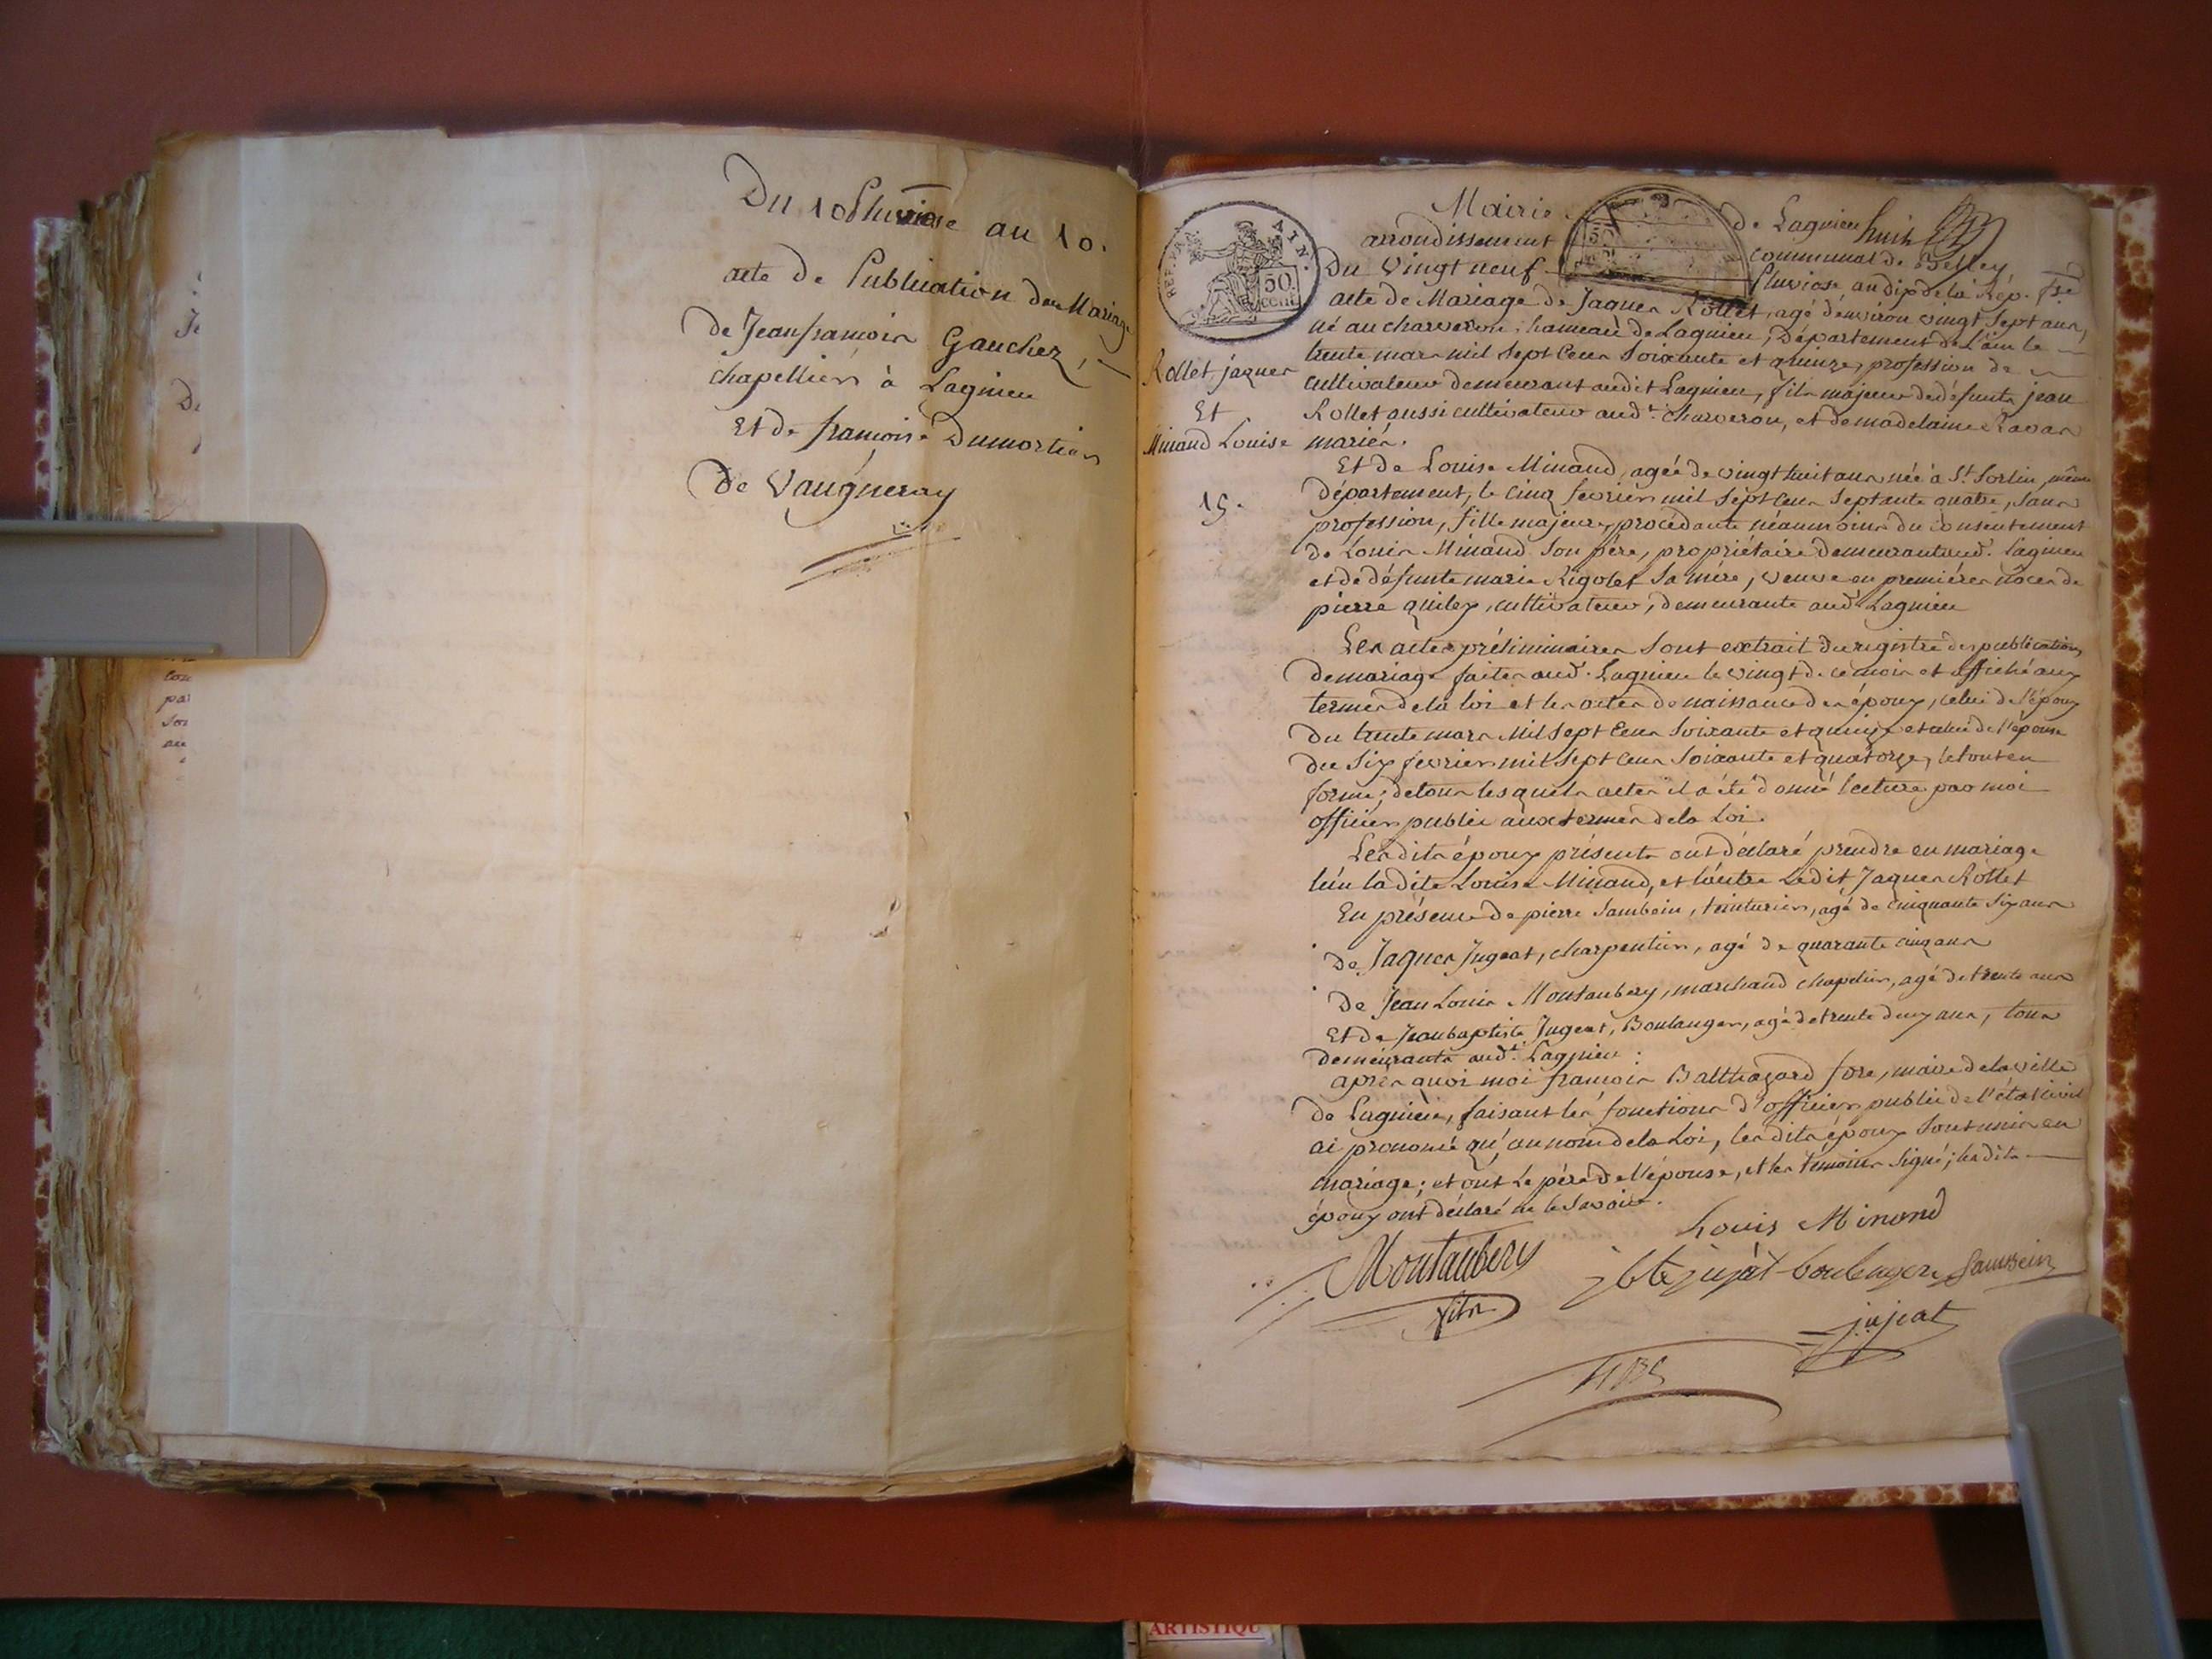 Du 10 Pluviose an 10.
acte de Publication de Mariage
de Jean françois Gauchez,
chapellier à Lagnieu
Et de françoise Dumortier
de Vaugneray
Je
De
par
son
RÉP. FRA.
AIN.
50
cent
Rollet jaques
Et
Minand Louise
15.
Mairie de Lagnieu huit
arrondissement communal de Belley
Du vingt neuf Pluviose an dix de la Rép. fse
acte de Mariage de Jaques Rollet, agé d'environ vingt sept ans,
né au charveron, hameau de Lagnieu, Département de L'ain le
trente mars mil sept Cens Soixante et quinze, profession de
cultivateur demeurant audit Lagnieu, fils majeur de défunts jean
Rollet aussi cultivateur aud.t charveron, et de madelaine Ravar
mariés.
Et de Louise Minand, agée de vingt huit ans née à St. Sorlin, même
Département, le cinq fevrier mil sept Cens Septante quatre, sans
profession, fille majeure, procédante néanmoins du consentement
de Louis Minand Son père, propriétaire demeurant aud.t Lagnieu
et de défunte marie Rigolet Sa mére, veuve en premiéres noces de
pierre quiley, cultivateur, demeurante aud.t Lagnieu
Les actes préliminaires Sont extrait du registre des publications
de mariage faites aud.t Lagnieu le vingt de ce mois et affiché aux
termes de la loi et les actes de naissance des époux, celui de l'époux
du trente mars Mil Sept Cens Soixante et quinze et celui de l'épouse
du Six fevrier mil Sept Cens Soixante et quatorze, le tout en
forme; de tous lesquels actes il a été donné lecture par moi
officier public aux termes de la Loi.
Lesdits époux présents ont déclaré prendre en mariage
l'un ladite Louise Minand, et l'autre Ledit Jaques Rollet
En présence de pierre Sambein, teinturier, agé de Cinquante Six ans
De Jaques Jugeat, charpentier, agé de quarante cinq ans
De Jean Louis Montaubery, marchand chapelier, agé de trente ans
Et de Jean baptiste Jugeat, Boulanger, agé de trente deux ans, tous
demeurants aud.t Lagnieu:
après quoi moi françois Balthazard fore, maire de la ville
de Lagnieu, faisant les fonctions d'officier public de l'état civil
ai prononcé qu'au nom de la Loi, lesdits époux Sont unis en
mariage; et ont Le pére de l'épouse, et les temoins Signé; lesdits
époux ont déclaré ne le Savoir.
Louis Minond
Montaubery
fils
jbte jujat boulenger Sambein
jujeat
ARTISTIQU